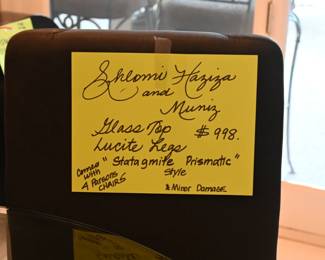 Shlomi Haziza
and
Muniz
Glass Top $998.
Lucite Legs
"Statagmite Prismatic"
Style
Comes
with
4 Parsons
CHAIRS
& Minor Damage